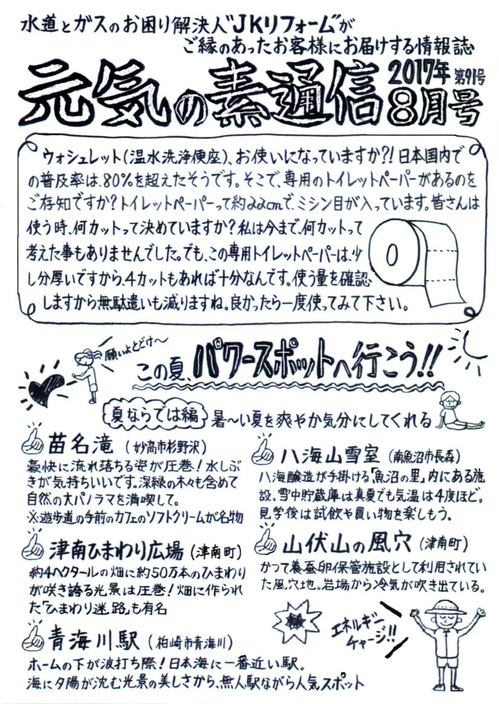 水道とガスのお困り解決人"JKリフォーム"が
ご縁のあったお客様にお届けする情報誌
元気の素通信 2017年 第91号
8月号
ウォシュレット(温水洗浄便座)、お使いになっていますか?!日本国内で
の普及率は、80%を超えたそうです。そこで、専用のトイレットペーパーがあるのを
ご存知ですか?トイレットペーパーって約22cmで、ミシン目が入っています。皆さんは
使う時、何カットって決めていますか?私は今まで、何カットって
考えた事もありませんでした。でも、この専用トイレットペーパーは、少
し分厚いですから、4カットもあれば十分なんです。使う量を確認
しますから無駄遣いも減りますね。良かったら一度使ってみて下さい。
願いよとどけ〜
この夏、パワースポットへ行こう!!
夏ならでは編 暑〜い夏を爽やか気分にしてくれる
苗名滝(妙高市杉野沢)
豪快に流れ落ちる姿が圧巻!水しぶ
きが気持ちいいです。深緑の木々も含めて
自然の大パノラマを満喫して。
※遊歩道の手前のカフェのソフトクリームが名物
津南ひまわり広場(津南町)
約4ヘクタールの畑に約50万本のひまわり
が咲き誇る光景は圧巻!畑に作られ
た「ひまわり迷路」も有名
青海川駅(柏崎市青海川)
ホームの下が波打ち際!日本海に一番近い駅。
海に夕陽が沈む光景の美しさから、無人駅ながら人気スポット
八海山雪室(南魚沼市長森)
八海醸造が手掛ける「魚沼の里」内にある施
設。雪中貯蔵庫は真夏でも気温は4度ほど。
見学後は試飲や買い物を楽しもう。
山伏山の風穴(津南町)
かつて養蚕卵保管施設として利用されてい
た風穴地。岩場から冷気が吹き出ている。
エネルギー
チャージ!!